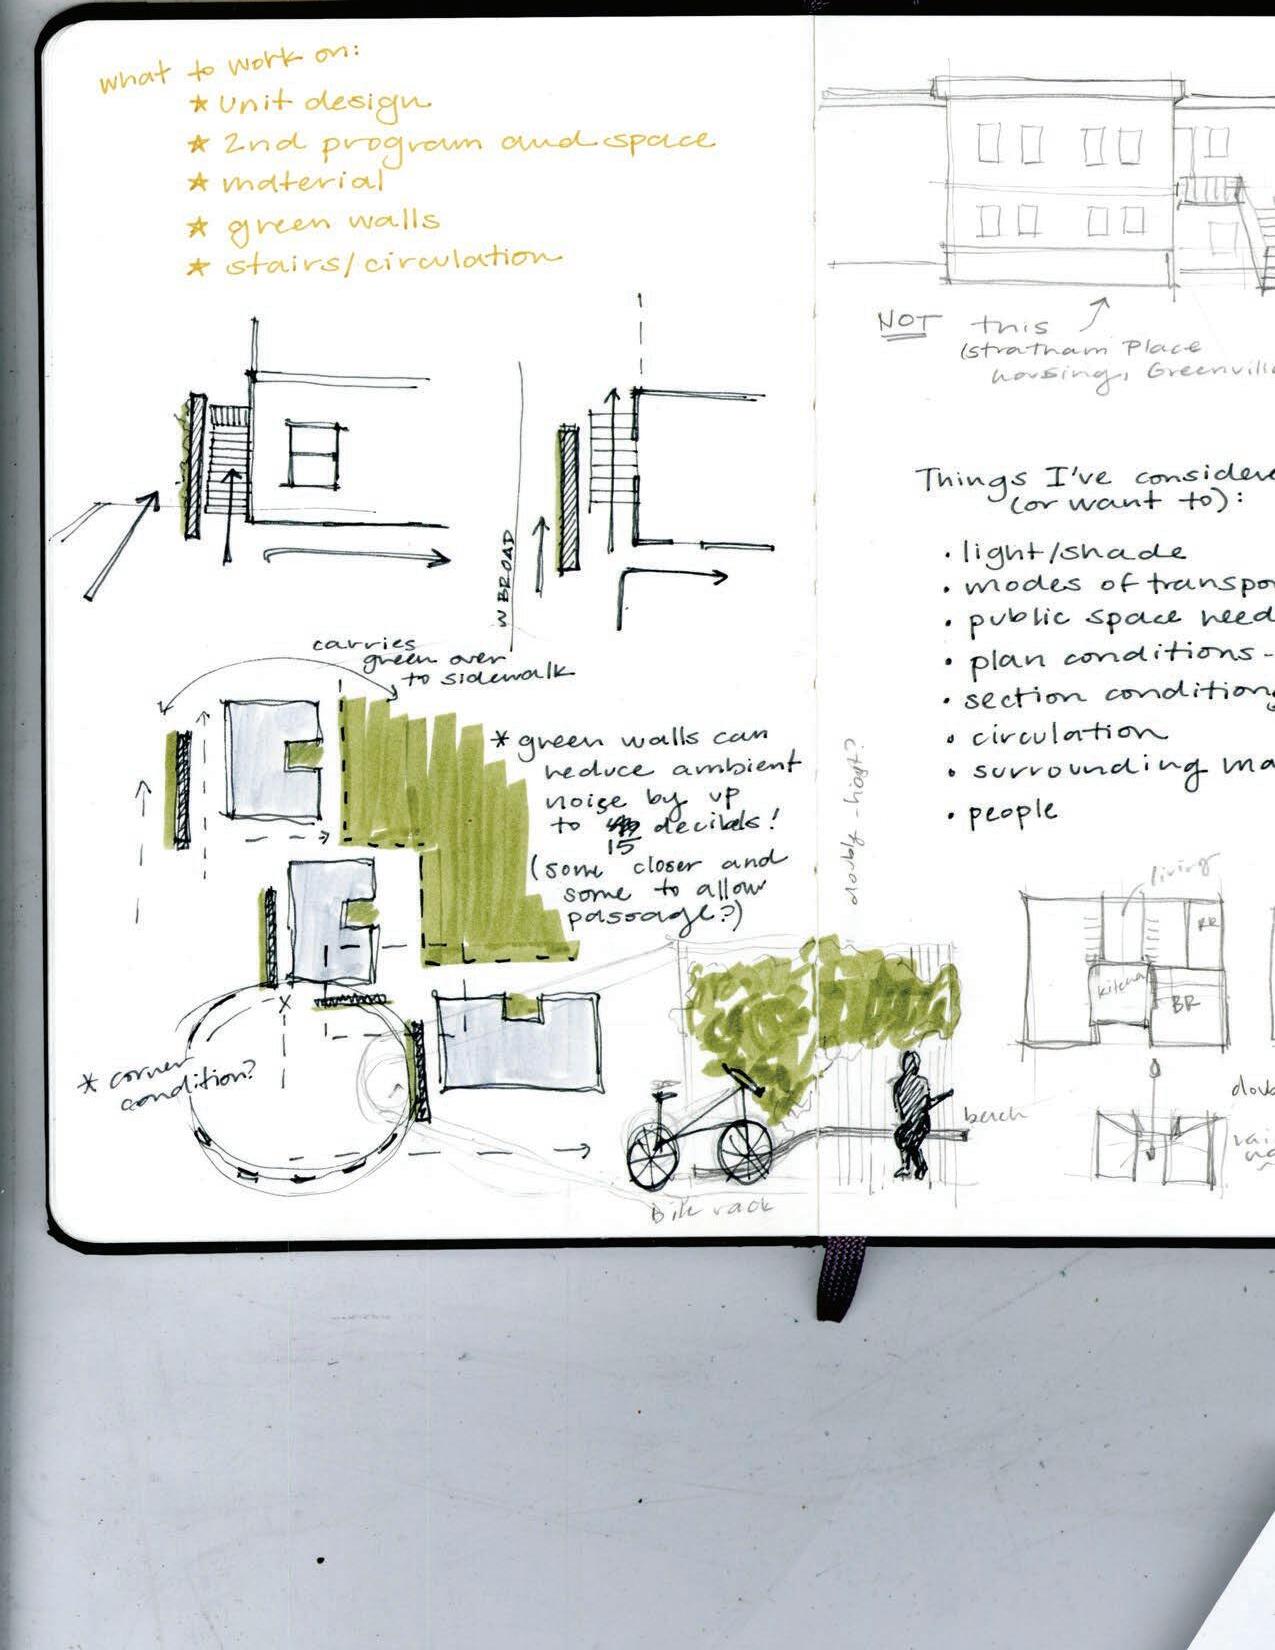 what to work on:
* unit design
* 2nd program and space
* material
* green walls
* stairs/circulation
W BROAD
carries
green over
to sidewalk
* green walls can
reduce ambient
noise by up
to decibels!
15
(some closer and
some to allow
passage?)
* corner
condition?
x
Bike rack
bench
NOT this
(Stratham Place
housing, Greenvill
Things I've considere
(or want to):
• light/shade
• modes of transpo
• public space need
• plan conditions -
• section condition
• circulation
• surrounding ma
• people
living
RR
kitchen
BR
doub